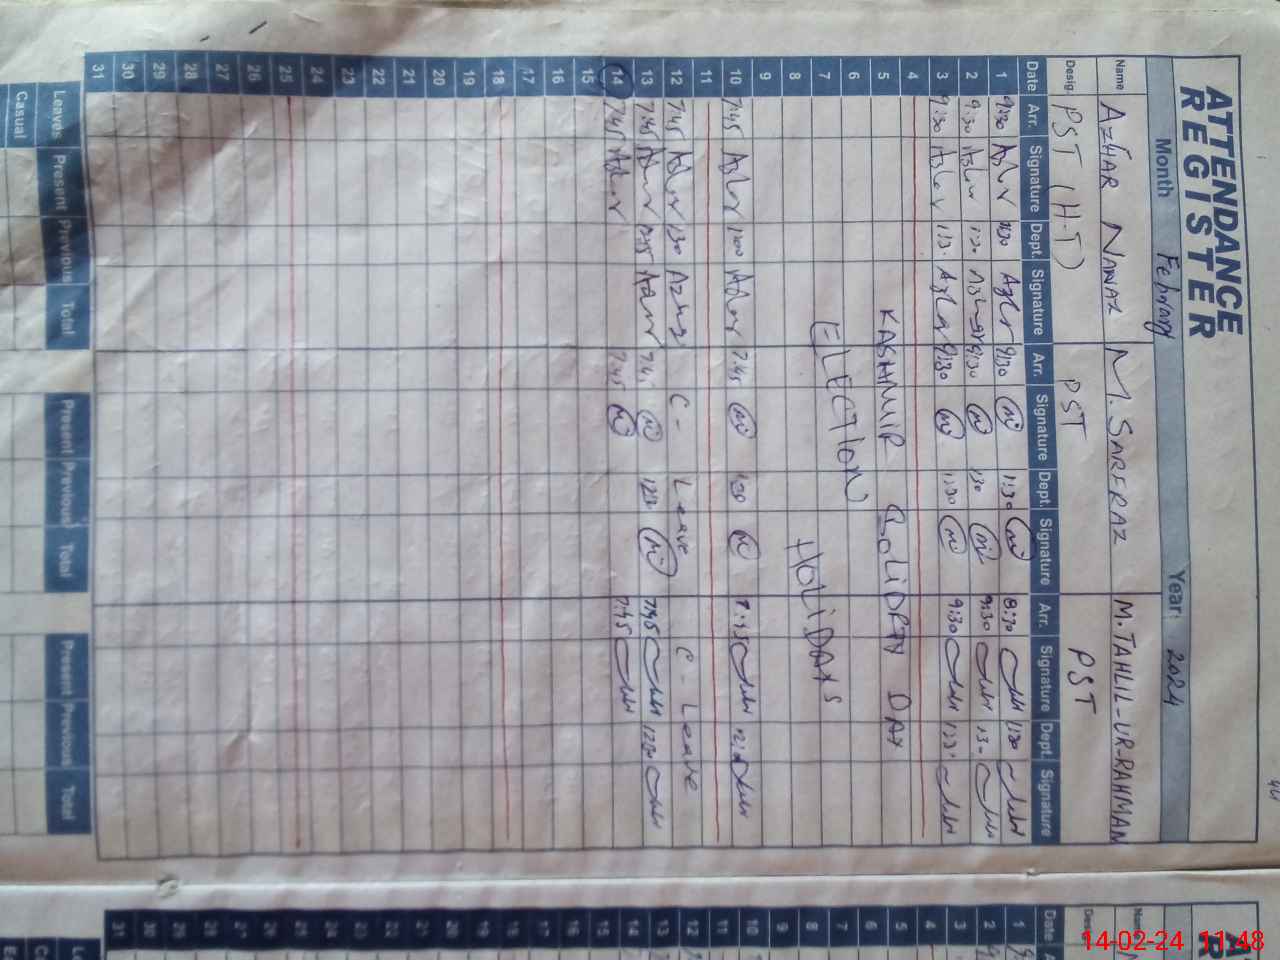 ATTENDANCE
REGISTER
Month Februray Year: 2024
Name AZHAR NAWAZ M. SARFRAZ M. TAHLIL-UR-RAHMAN
Desig. PST (H-T) PST PST
Date Arr. Signature Dept. Signature Arr. Signature Dept. Signature Arr. Signature Dept. Signature
1 9:30 Azhr 1:30 Azhr 9:30 1:30 8:30 1:30
2 9:30 Azhar 1:30 Azhar 9:30 1:30 9:30 1:30
3 9:30 Azhar 1:30 Azhar 9:30 1:30 9:30 1:30
4
5 KASHMIR SOLIDRTY DAY
6
7 ELECTION HOLIDAYS
8
9
10 7:45 Azhar 1:00 Azhar 7:45 1:30 7:45
11
12 7:45 Azhar 1:30 Azhar C - Leave C - Leave
13 7:45 Azhar Azhar 7:45 7:45
14 7:45 Azhar 7:45 7:45
15
16
17
18
19
20
21
22
23
24
25
26
27
28
29
30
31
Leaves Present Previous Total Present Previous Total Present Previous Total
Casual
Date
1
2
3
4
5
6
7
8
9
10
11
12
13
14
15
16
17
18
19
20
21
22
23
24
25
26
27
28
29
30
31
14-02-24 11:48